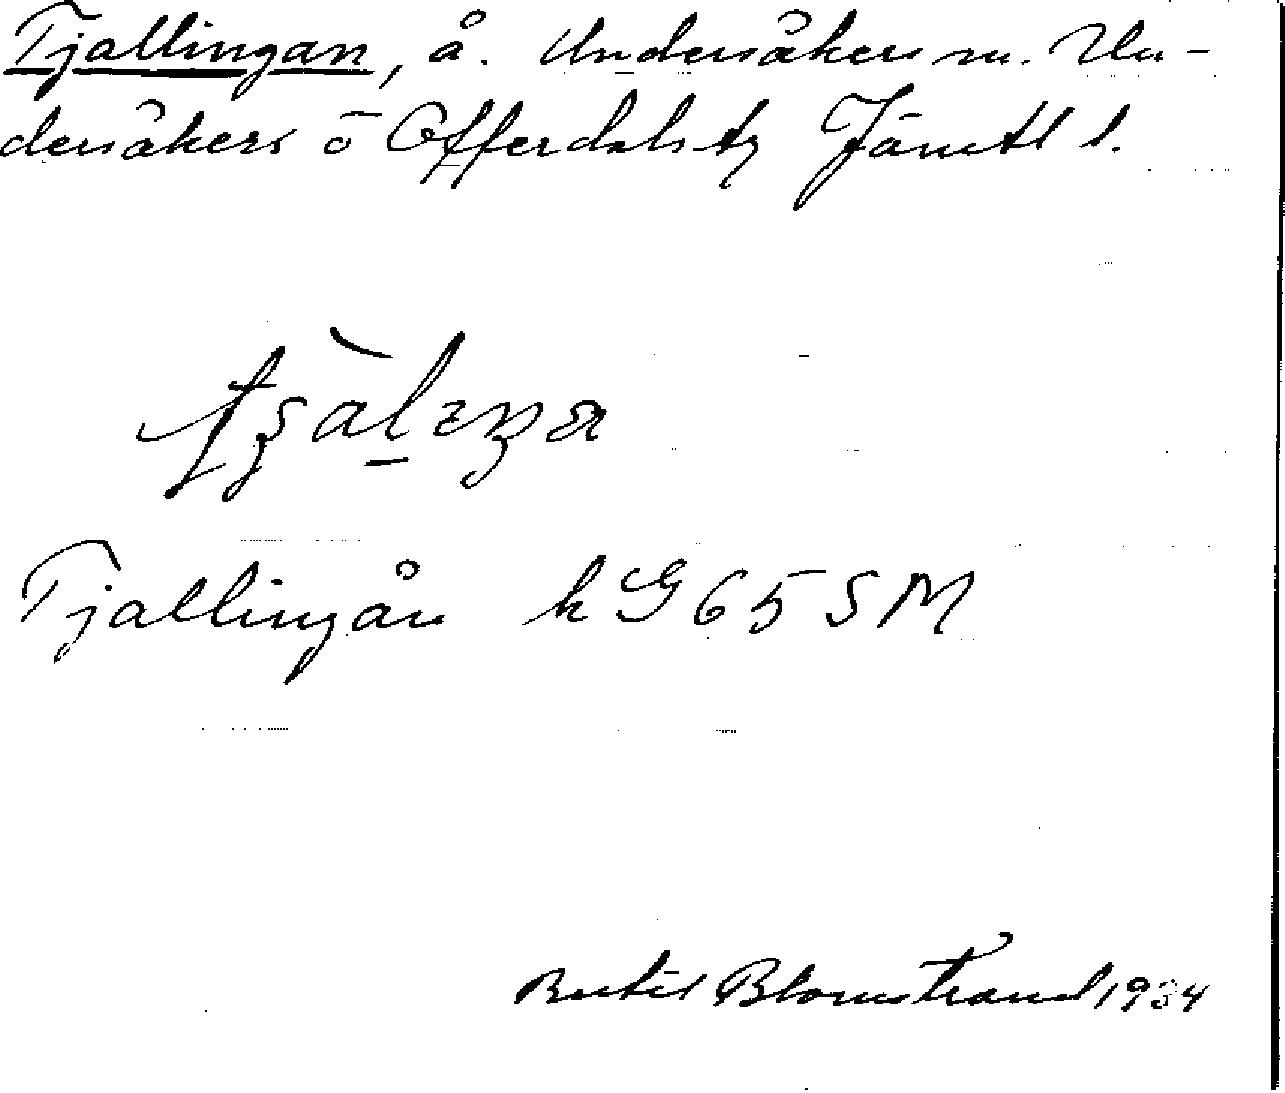 Tjallingan, å. Undersåkers sn. Un-
dersåkers o Offerdals tg Jämtl l.
Tjallingån kG65SM
Bertil Blomstrand 1934